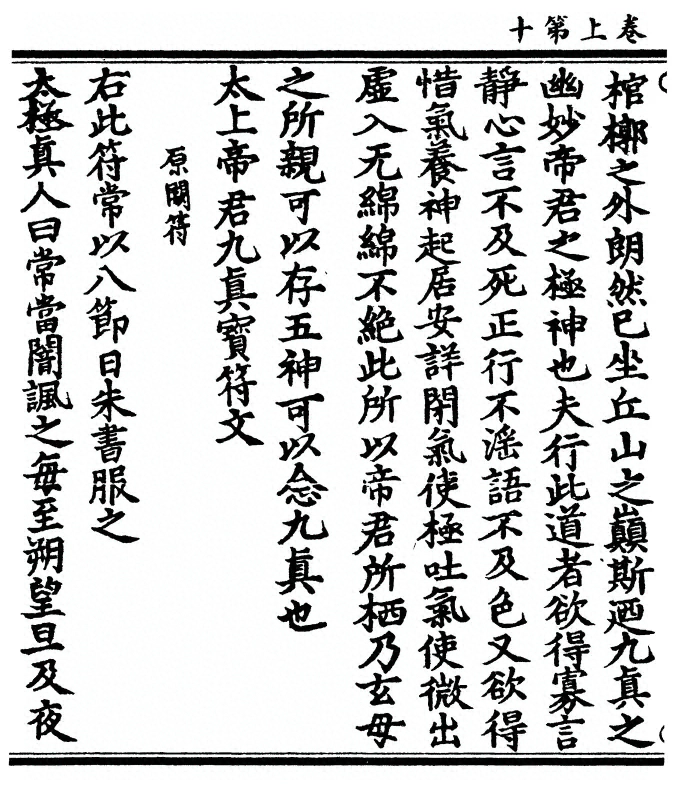 卷上第十
棺槨之外朗然已坐丘山之巔斯迺九真之
幽妙帝君之極神也夫行此道者欲得寡言
靜心言不及死正行不滛語不及色又欲得
惜氣養神起居安詳閉氣使極吐氣使微出
虛入无綿綿不絶此所以帝君所栖乃玄母
之所親可以存五神可以念九眞也
太上帝君九眞寶符文
原闕符
右此符常以八節日朱書服之
太極真人曰常當闇諷之每至朔望旦及夜